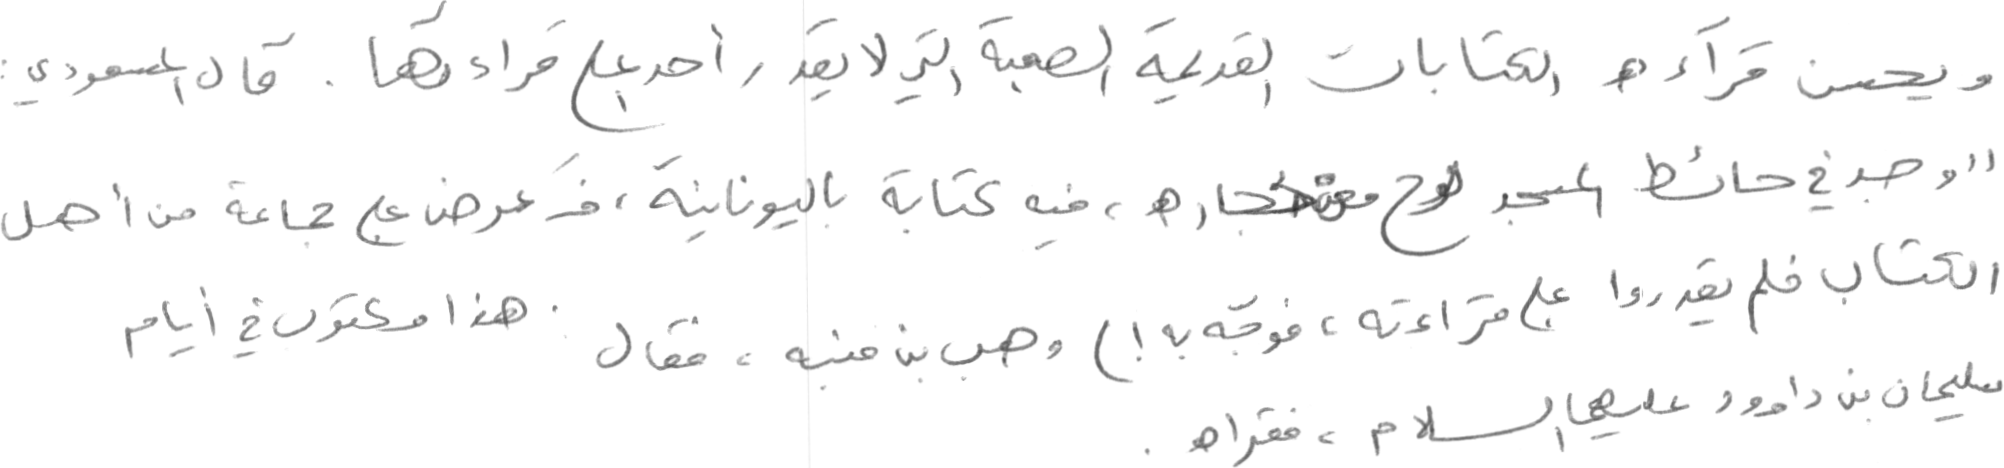 ويحسن قرآءه الكتابات القديمة الصعبة التي لا يقدر أحد على قراءتها. قال المسعودي:
"وجد في حائط المسجد لوح من حجاره، فيه كتابة باليونانية، فعرض على جماعة من أهل
الكتاب فلم يقدروا على قراءته، فوجّه به إلى وهب بن منبه، فقال: هذا مكتوب في أيام
سليمان بن داوود عليهما السلام، فقراه.